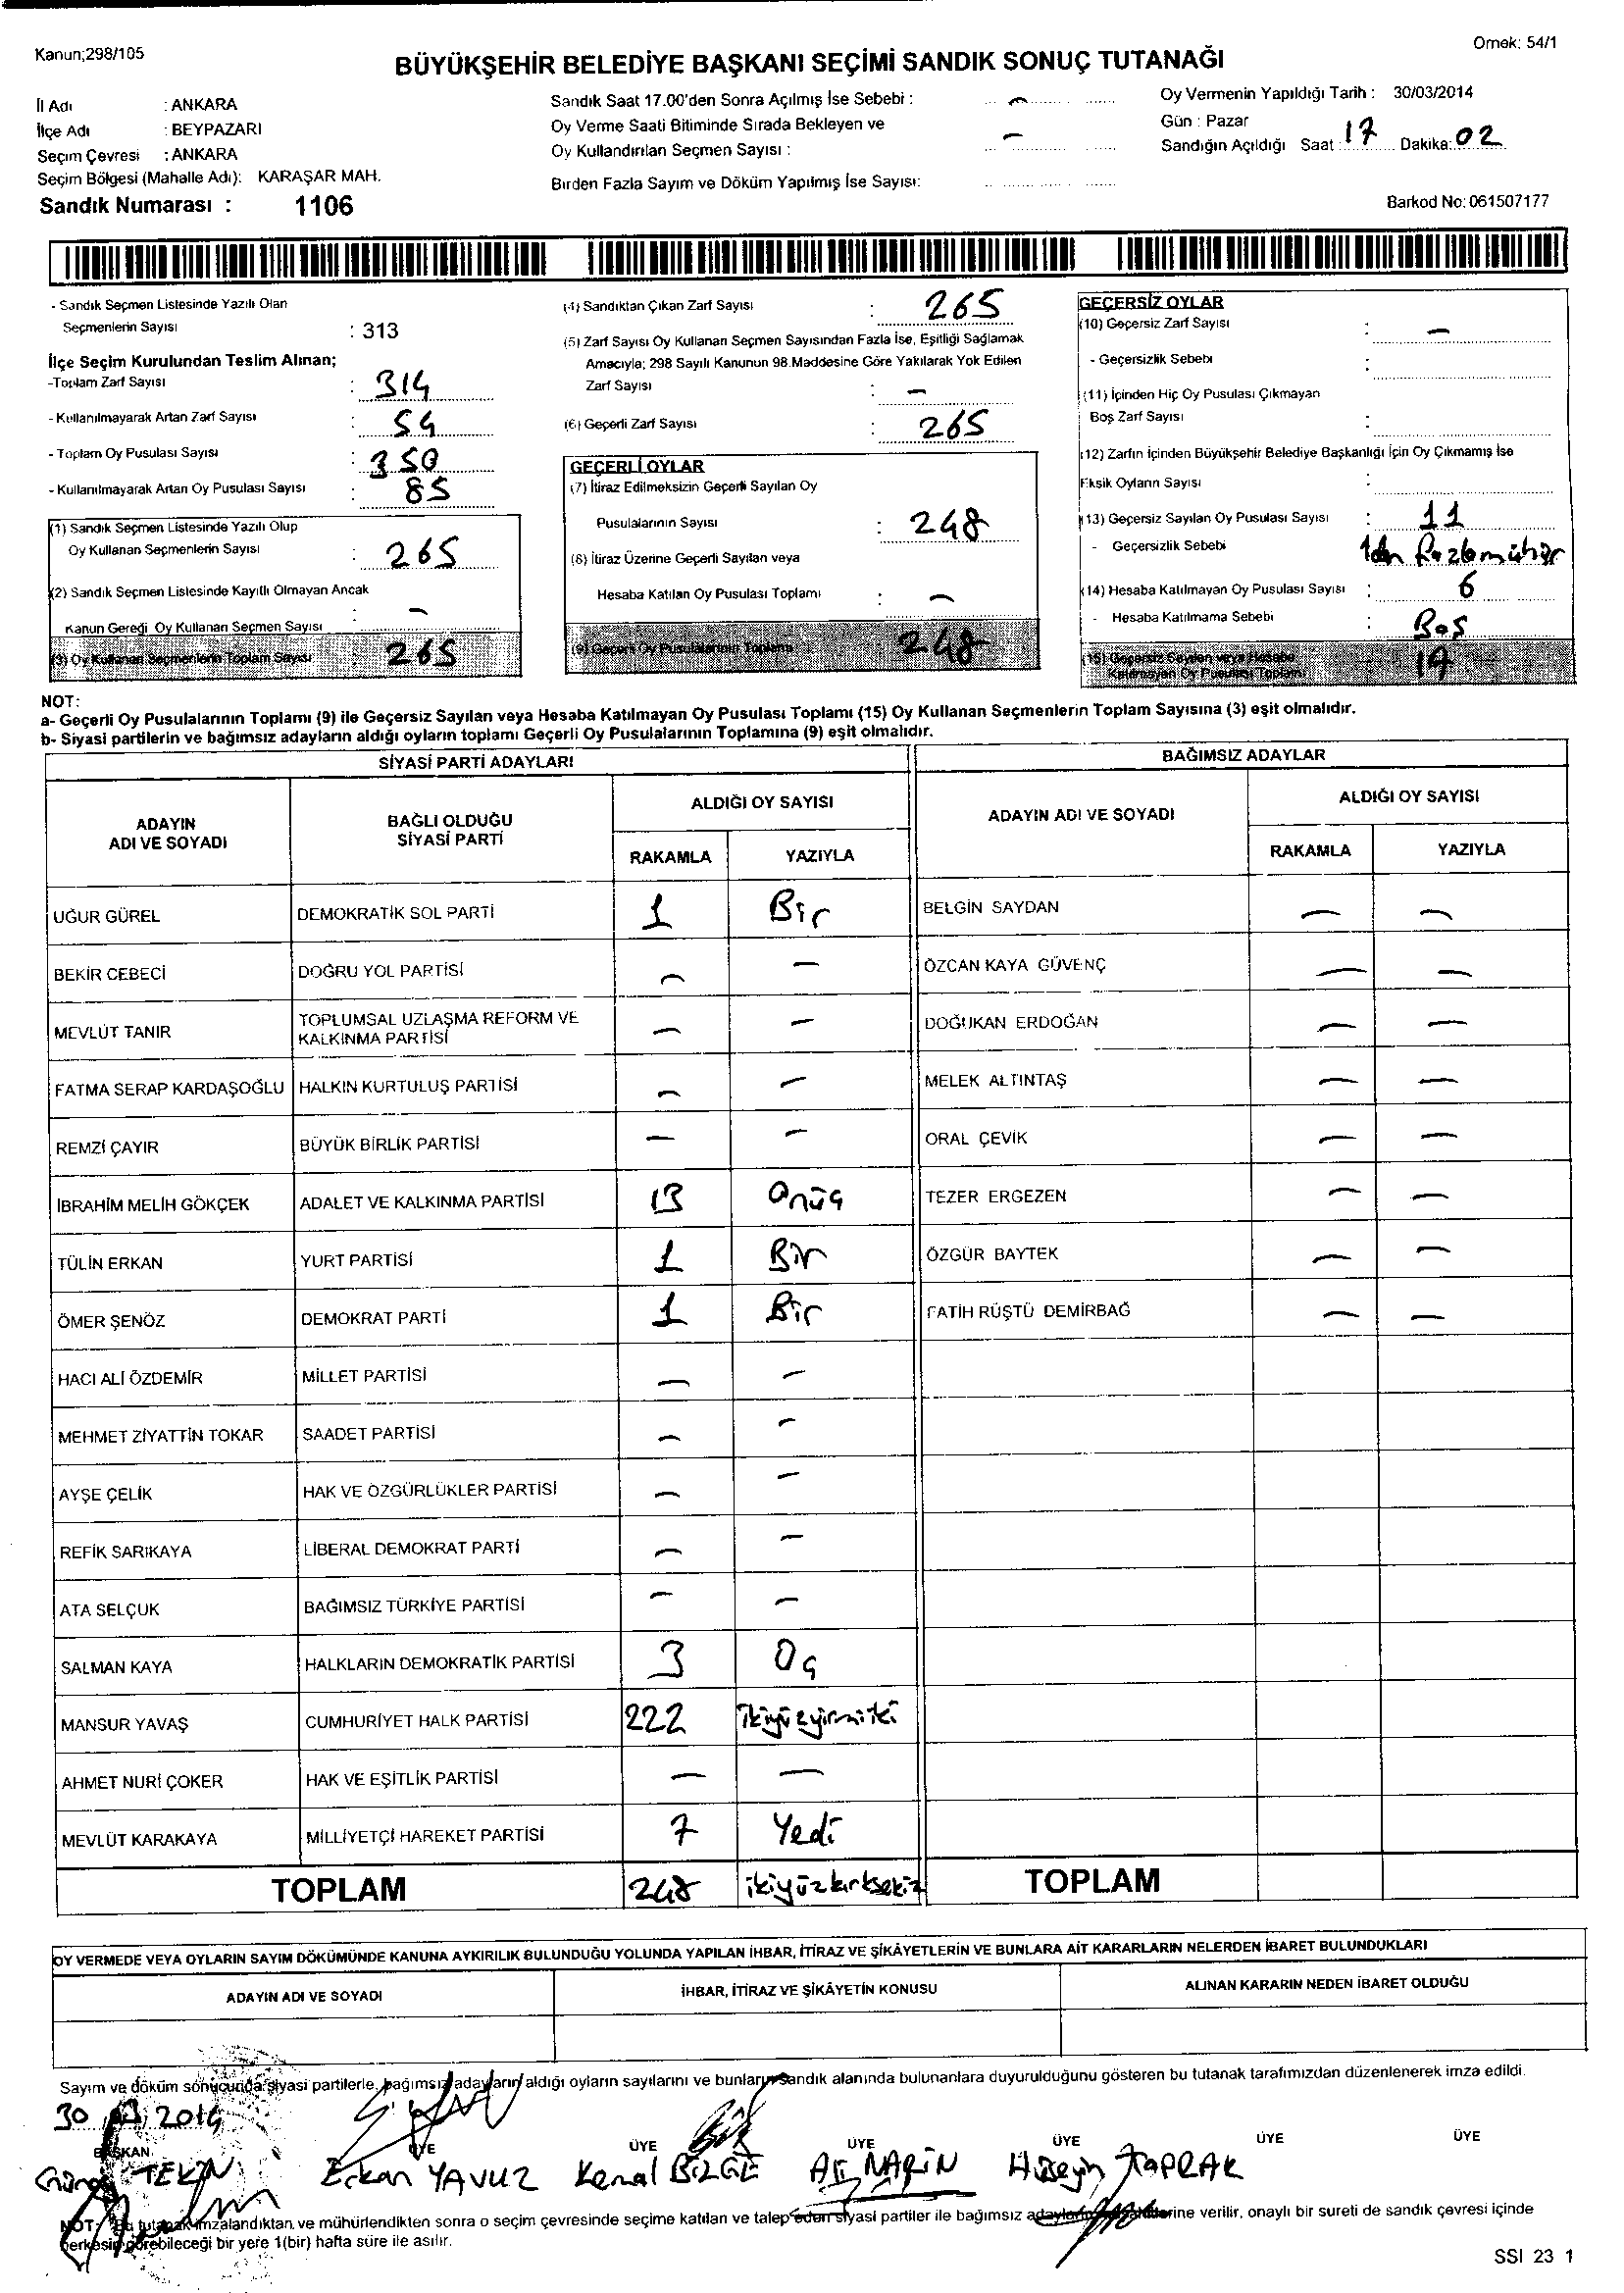 Kanun;298/105
BÜYÜKŞEHİR BELEDİYE BAŞKANI SEÇİMİ SANDIK SONUÇ TUTANAĞI
Ornek: 54/1
İl Adı : ANKARA
İlçe Adı : BEYPAZARI
Seçim Çevresi : ANKARA
Seçim Bölgesi (Mahalle Adı): KARAŞAR MAH.
Sandık Numarası : 1106
Sandık Saat 17.00'den Sonra Açılmış İse Sebebi : –
Oy Verme Saati Bitiminde Sırada Bekleyen ve
Oy Kullandırılan Seçmen Sayısı : –
Birden Fazla Sayım ve Döküm Yapılmış İse Sayısı:
Oy Vermenin Yapıldığı Tarih : 30/03/2014
Gün : Pazar
Sandığın Açıldığı Saat : 17 Dakika: 02
Barkod No: 061507177
- Sandık Seçmen Listesinde Yazılı Olan
Seçmenlerin Sayısı : 313
İlçe Seçim Kurulundan Teslim Alınan;
-Toplam Zarf Sayısı : 314
- Kullanılmayarak Artan Zarf Sayısı : 54
- Toplam Oy Pusulası Sayısı : 350
- Kullanılmayarak Artan Oy Pusulası Sayısı : 85
(1) Sandık Seçmen Listesinde Yazılı Olup
Oy Kullanan Seçmenlerin Sayısı : 265
(2) Sandık Seçmen Listesinde Kayıtlı Olmayan Ancak
Kanun Gereği Oy Kullanan Seçmen Sayısı –
(3) Oy Kullanan Seçmenlerin Toplam Sayısı : 265
(4) Sandıktan Çıkan Zarf Sayısı : 265
(5) Zarf Sayısı Oy Kullanan Seçmen Sayısından Fazla İse, Eşitliği Sağlamak
Amacıyla; 298 Sayılı Kanunun 98.Maddesine Göre Yakılarak Yok Edilen
Zarf Sayısı : –
(6) Geçerli Zarf Sayısı : 265
GEÇERLİ OYLAR
(7) İtiraz Edilmeksizin Geçerli Sayılan Oy
Pusulalarının Sayısı : 248
(8) İtiraz Üzerine Geçerli Sayılan veya
Hesaba Katılan Oy Pusulası Toplamı : –
(9) Geçerli Oy Pusulalarının Toplamı 248
GEÇERSİZ OYLAR
(10) Geçersiz Zarf Sayısı : –
- Geçersizlik Sebebi :
(11) İçinden Hiç Oy Pusulası Çıkmayan
Boş Zarf Sayısı :
(12) Zarfın İçinden Büyükşehir Belediye Başkanlığı İçin Oy Çıkmamış İse
Eksik Oyların Sayısı :
(13) Geçersiz Sayılan Oy Pusulası Sayısı : 11
- Geçersizlik Sebebi 1den fazla mühür
(14) Hesaba Katılmayan Oy Pusulası Sayısı : 6
- Hesaba Katılmama Sebebi : Boş
(15) Geçersiz Sayılan veya Hesaba
Katılmayan Oy Pusulası Toplamı 17
NOT:
a- Geçerli Oy Pusulalarının Toplamı (9) ile Geçersiz Sayılan veya Hesaba Katılmayan Oy Pusulası Toplamı (15) Oy Kullanan Seçmenlerin Toplam Sayısına (3) eşit olmalıdır.
b- Siyasi partilerin ve bağımsız adayların aldığı oyların toplamı Geçerli Oy Pusulalarının Toplamına (9) eşit olmalıdır.
SİYASİ PARTİ ADAYLARI
ADAYIN ADI VE SOYADI
BAĞLI OLDUĞU SİYASİ PARTİ
ALDIĞI OY SAYISI
RAKAMLA YAZIYLA
UĞUR GÜREL DEMOKRATİK SOL PARTİ 1 Bir
BEKİR CEBECİ DOĞRU YOL PARTİSİ – –
MEVLÜT TANIR TOPLUMSAL UZLAŞMA REFORM VE KALKINMA PARTİSİ – –
FATMA SERAP KARDAŞOĞLU HALKIN KURTULUŞ PARTİSİ – –
REMZİ ÇAYIR BÜYÜK BİRLİK PARTİSİ – –
İBRAHİM MELİH GÖKÇEK ADALET VE KALKINMA PARTİSİ 13 Onüç
TÜLİN ERKAN YURT PARTİSİ 1 Bir
ÖMER ŞENÖZ DEMOKRAT PARTİ 1 Bir
HACI ALİ ÖZDEMİR MİLLET PARTİSİ – –
MEHMET ZİYATTİN TOKAR SAADET PARTİSİ – –
AYŞE ÇELİK HAK VE ÖZGÜRLÜKLER PARTİSİ – –
REFİK SARIKAYA LİBERAL DEMOKRAT PARTİ – –
ATA SELÇUK BAĞIMSIZ TÜRKİYE PARTİSİ – –
SALMAN KAYA HALKLARIN DEMOKRATİK PARTİSİ 3 Üç
MANSUR YAVAŞ CUMHURİYET HALK PARTİSİ 222 ikiyüzyirmiiki
AHMET NURİ ÇOKER HAK VE EŞİTLİK PARTİSİ – –
MEVLÜT KARAKAYA MİLLİYETÇİ HAREKET PARTİSİ 7 Yedi
TOPLAM 248 ikiyüzkırksekiz
BAĞIMSIZ ADAYLAR
ADAYIN ADI VE SOYADI
ALDIĞI OY SAYISI
RAKAMLA YAZIYLA
BELGİN SAYDAN – –
ÖZCAN KAYA GÜVENÇ – –
DOĞUKAN ERDOĞAN – –
MELEK ALTINTAŞ – –
ORAL ÇEVİK – –
TEZER ERGEZEN – –
ÖZGÜR BAYTEK – –
FATİH RÜŞTÜ DEMİRBAĞ – –
TOPLAM
OY VERMEDE VEYA OYLARIN SAYIM DÖKÜMÜNDE KANUNA AYKIRILIK BULUNDUĞU YOLUNDA YAPILAN İHBAR, İTİRAZ VE ŞİKÂYETLERİN VE BUNLARA AİT KARARLARIN NELERDEN İBARET BULUNDUKLARI
ADAYIN ADI VE SOYADI İHBAR, İTİRAZ VE ŞİKÂYETİN KONUSU ALINAN KARARIN NEDEN İBARET OLDUĞU
Sayım ve döküm sonucunda siyasi partilerle, bağımsız adayların aldığı oyların sayılarını ve bunların sandık alanında bulunanlara duyurulduğunu gösteren bu tutanak tarafımızdan düzenlenerek imza edildi.
30 03 2014
BAŞKAN ÜYE ÜYE ÜYE ÜYE ÜYE ÜYE
TEKİN Erkan YAVUZ Kemal BİLGE Ali NARİN Hüseyin TOPRAK
NOT: Bu tutanak imzalandıktan ve mühürlendikten sonra o seçim çevresinde seçime katılan ve talep eden siyasi partiler ile bağımsız adayların verilir, onaylı bir sureti de sandık çevresi içinde
herkesin görebileceği bir yere 1(bir) hafta süre ile asılır.
SSI 23 1